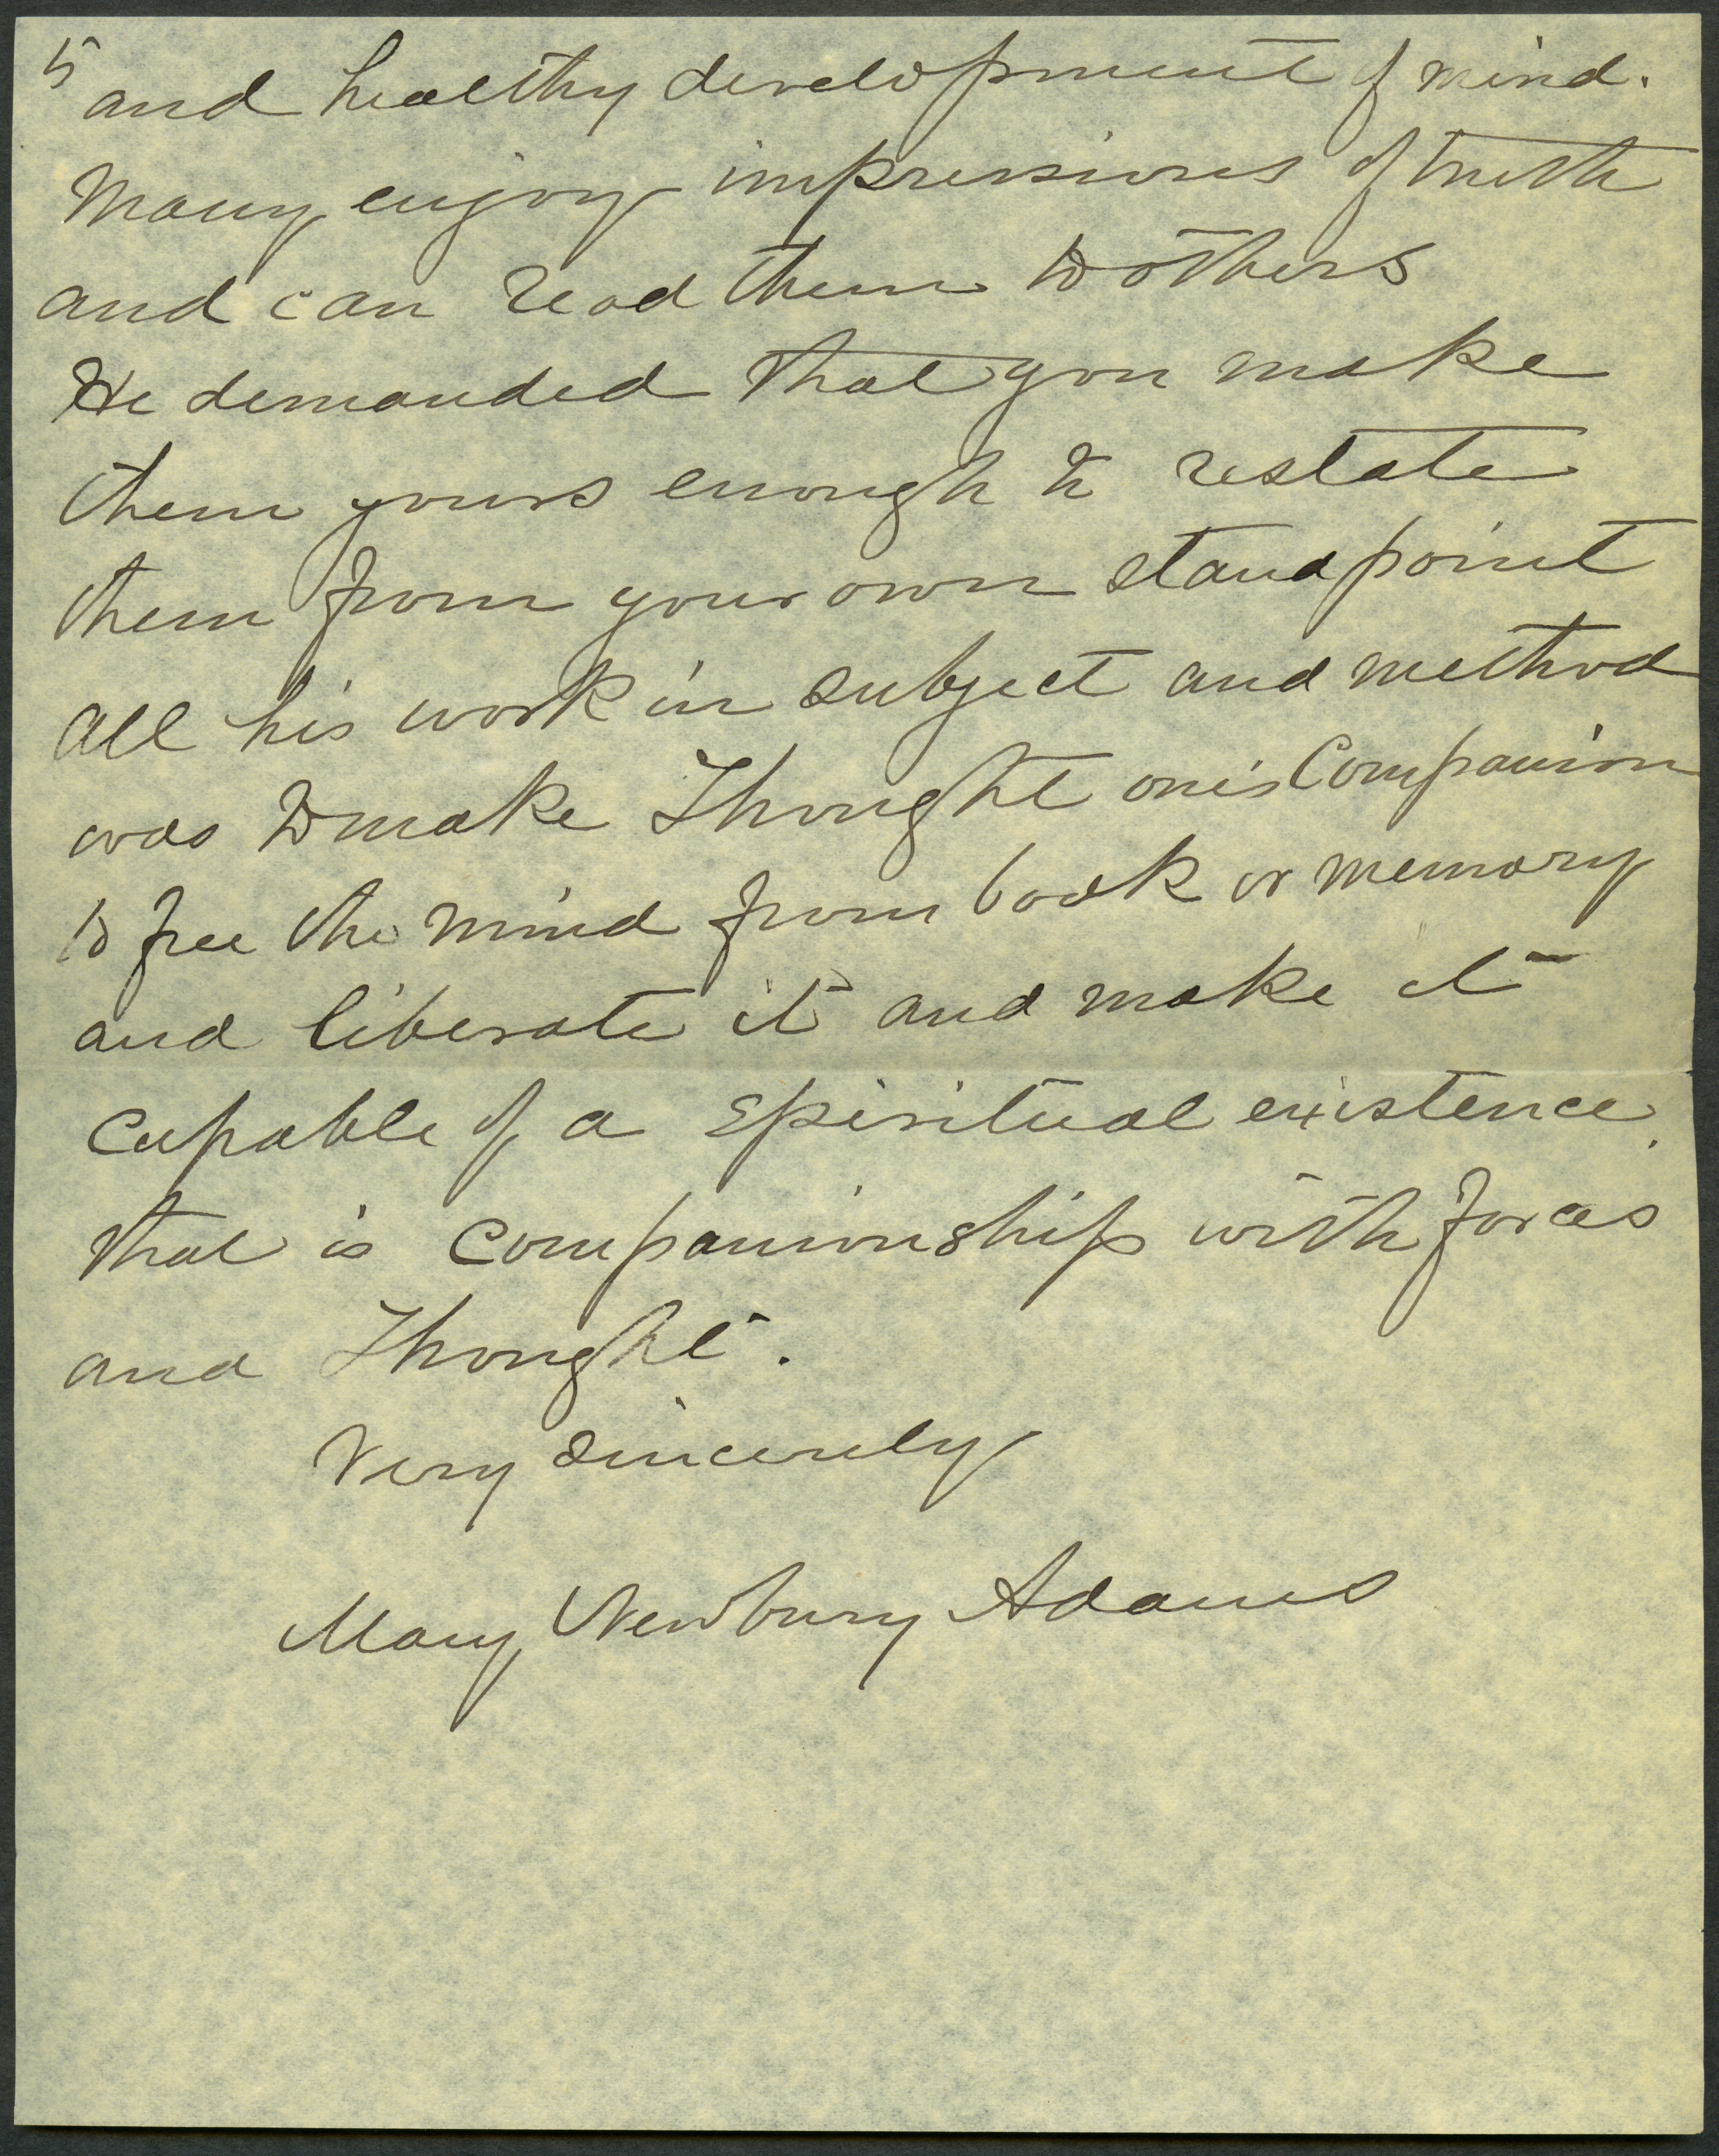 5
and healthy development of mind.
Many enjoy impressions of truth
and can read them to others
He demanded that you make
them yours enough to restate
them from your own standpoint
All his work in subject and method
was to make Thought one's Companion
to free the mind from book or memory
and liberate it and make it
capable of a spiritual existence.
that is companionship with forces
and Thought.
Very sincerely
Mary Newbury Adams